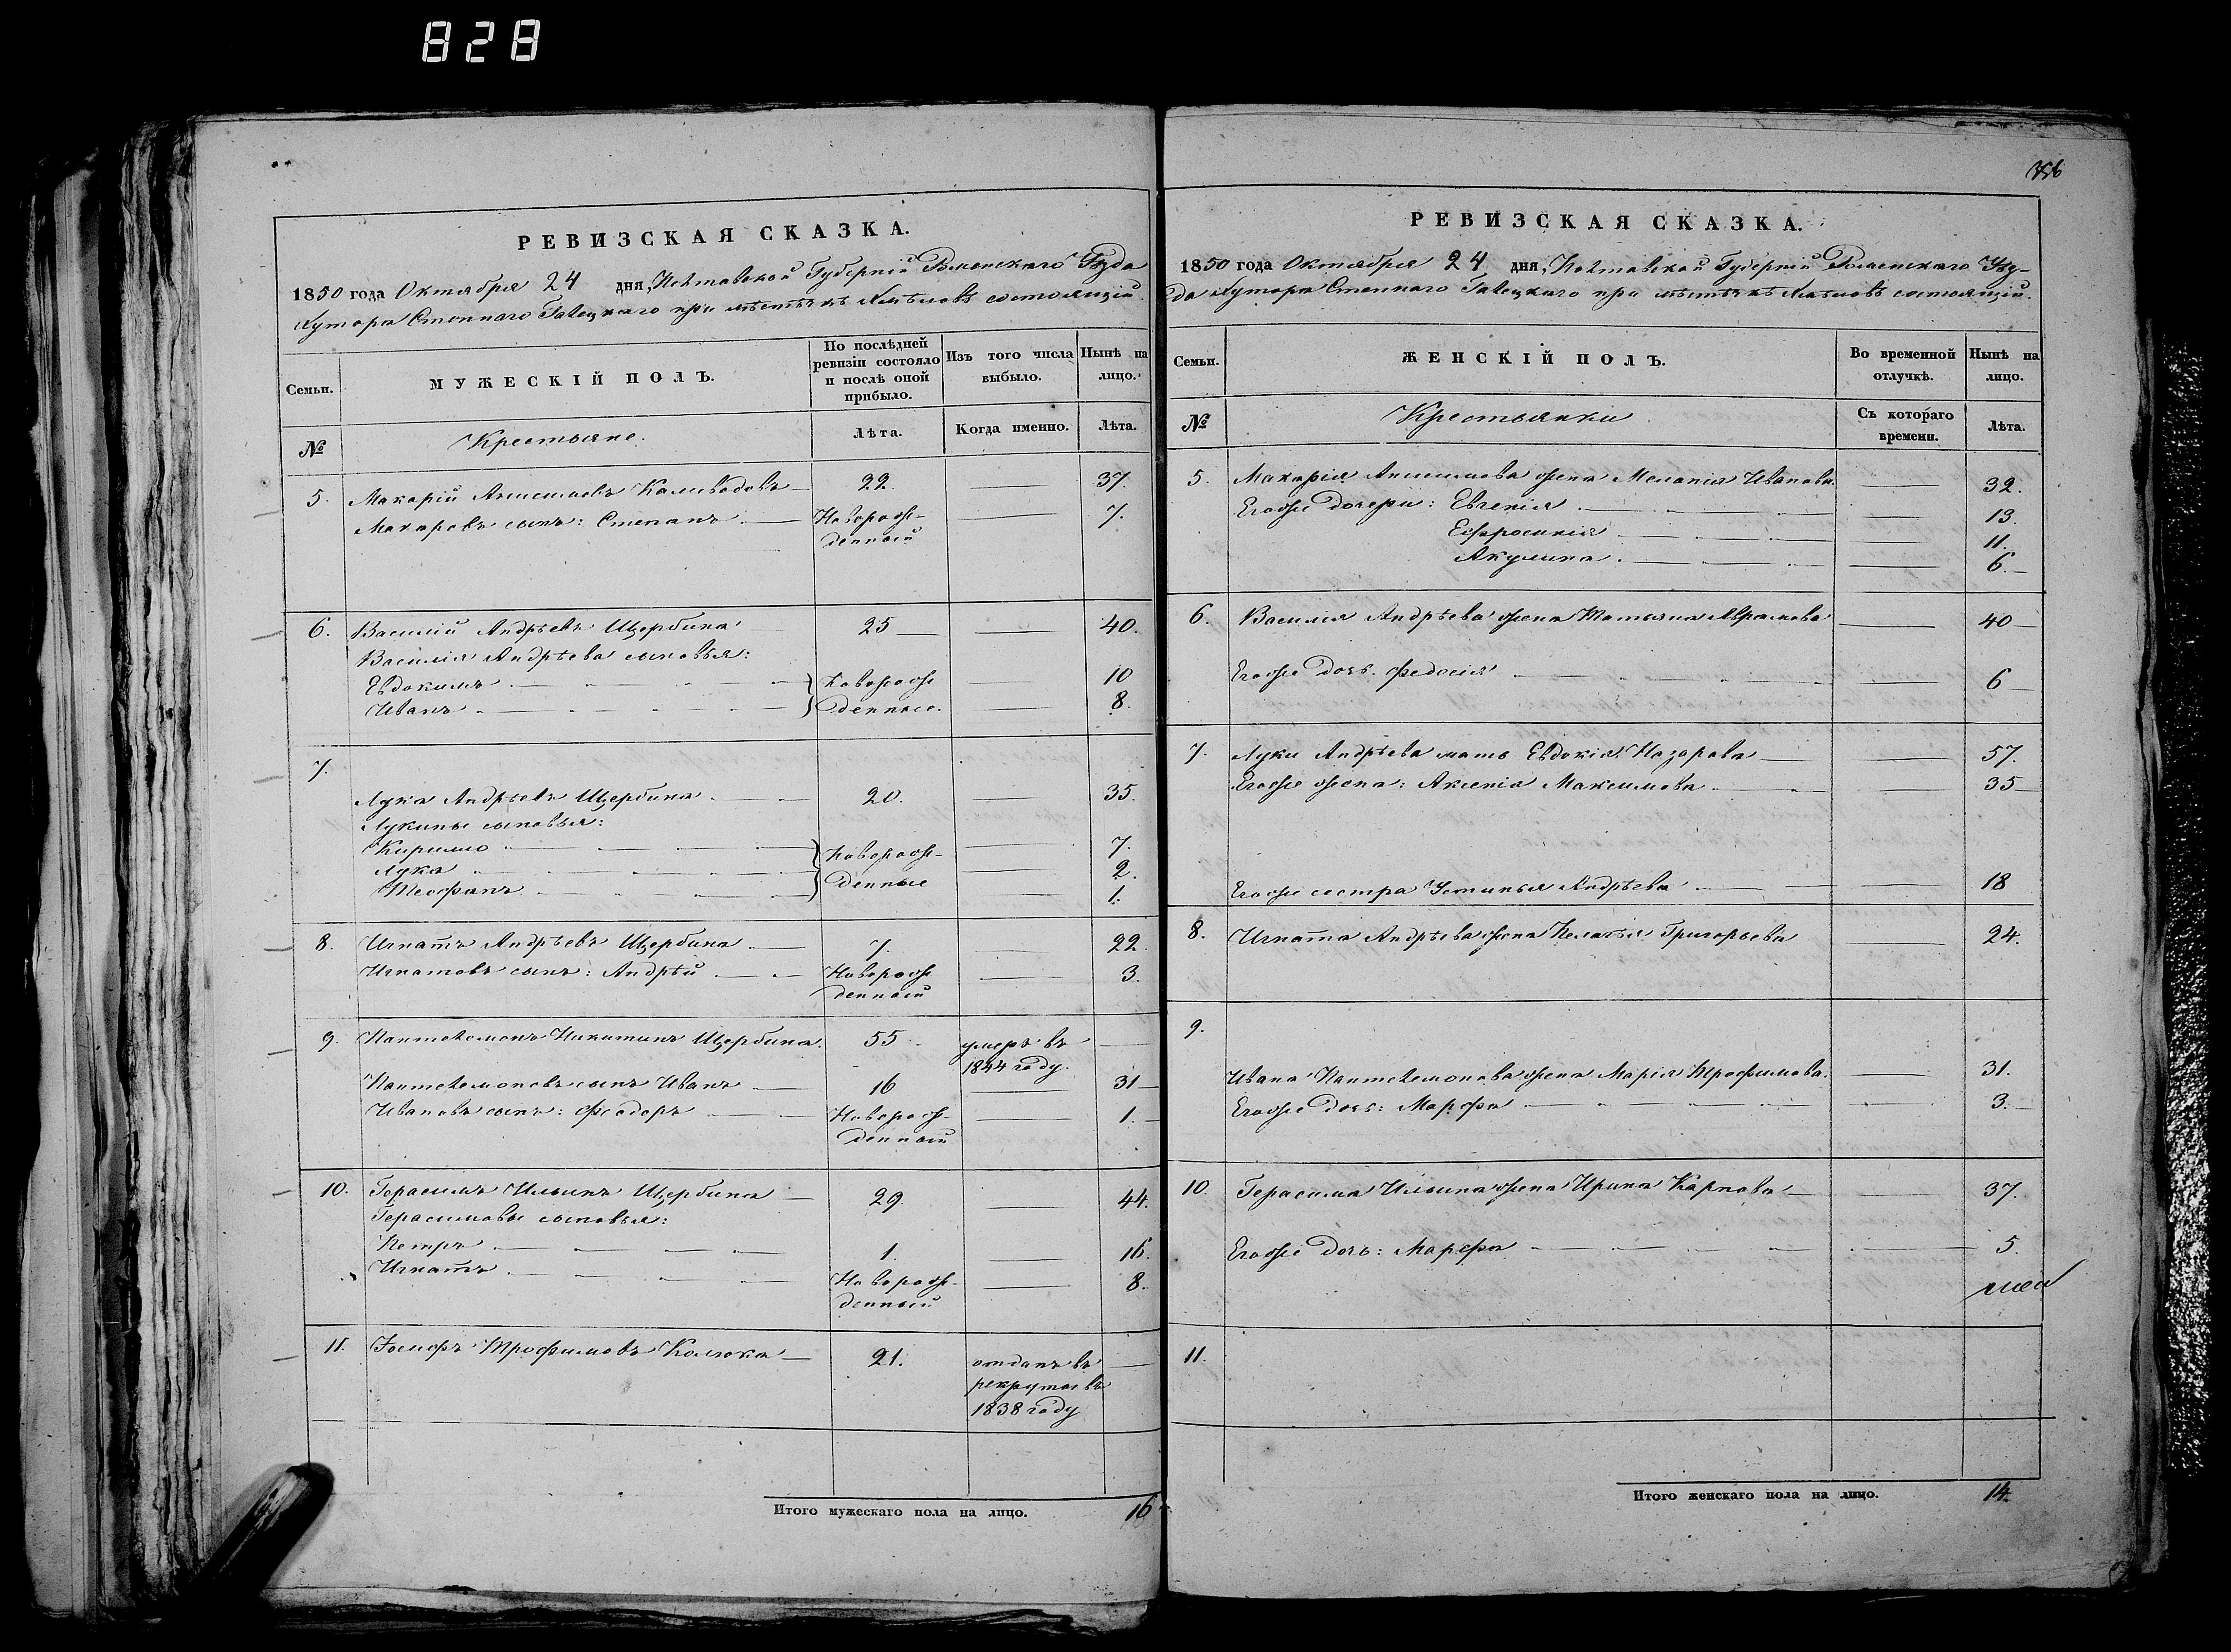 828
РЕВИЗСКАЯ СКАЗКА.
1850 года Октября 24 дня, Полтавской Губерніи Роменскаго Уѣзда
Хутора Степнаго при мѣстечкѣ Хмѣловѣ состоящій.
Семьи.
МУЖЕСКІЙ ПОЛЪ.
По послѣдней ревизіи состояло и послѣ оной прибыло.
Изъ того числа выбыло.
Нынѣ на лицо.
№
Крестьяне.
Лѣта.
Когда именно.
Лѣта.
5. Макарій 22. 37.
Макаровъ сынъ: Степанъ Новорож- 7.
денный
6. Василій Андрѣевъ Щербина 25 40.
Василія Андрѣева сыновья:
Евдокимъ Новорож 10
Иванъ денные. 8.
7.
Лука Андрѣевъ Щербина 20. 35.
Лукины сыновья:
Кирилло Новорож- 7.
Лука денные 2.
Теофанъ 1.
8. Игнатъ Андрѣевъ Щербина 7. 22.
Игнатовъ сынъ: Андрѣй Новорож 3.
денный
9. Пантелемонъ Никитинъ Щербина. 55 умеръ въ
1844 году.
Пантелемоновъ сынъ Иванъ 16 31
Ивановъ сынъ: Феодоръ Новорож- 1.
денный
10. Герасимъ Ильинъ Щербина 29. 44.
Герасимовы сыновья:
Петръ 1. 16.
Игнатъ Новорож- 8.
денный
11. Іосифъ Трофимовъ 21. отданъ въ
рекруты въ
1838 году
Итого мужескаго пола на лицо. 16
РЕВИЗСКАЯ СКАЗКА.
1850 года Октября 24 дня, Полтавской Губерніи Роменскаго Уѣз-
да Хутора Степнаго при мѣстечкѣ Хмѣловѣ состоящій.
Семьи.
ЖЕНСКІЙ ПОЛЪ.
Во временной отлучкѣ.
Нынѣ на лицо.
№
Крестьянки
Съ котораго времени.
Лѣта.
5. Макарія жена Меланія Иванова 32.
Егоже дочери: Евгенія 13.
Ефросинія 11.
Акулина 6.
6. Василія Андрѣева жена Татьяна Аврамова 40
Егоже дочь. Федосія 6
7. Луки Андрѣева мать Евдокія Назарова 57.
Егоже жена: Аксенія Максимова 35
Егоже сестра Устинья Андрѣева 18
8. Игната Андрѣева жена Пелагѣя Григорьева 24.
9.
Ивана Пантелемонова жена Марія Трофимова. 31.
Егоже дочь: Марфа 3.
10. Герасима Ильина жена Ирина Карпова 37.
Егоже дочь: Марфа 5.
11.
Итого женскаго пола на лицо. 14.